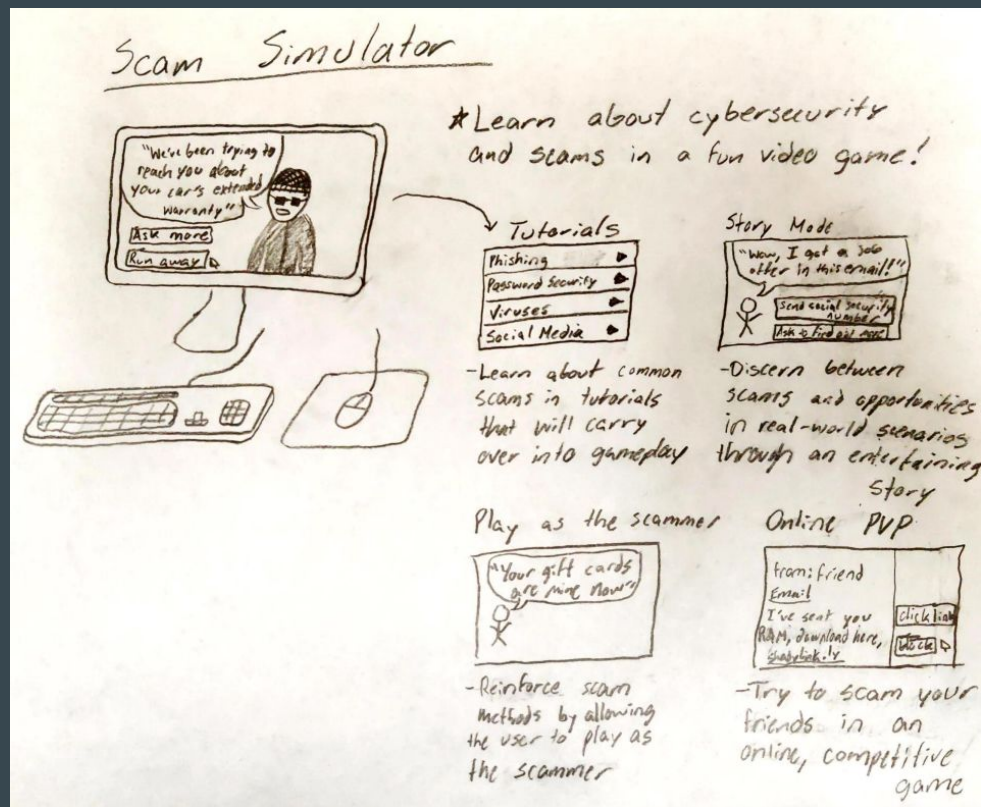 Scam Simulator
"We've been trying to
reach you about
your car's extended
warranty"
Ask more
Run away
*Learn about cybersecurity
and scams in a fun video game!
Tutorials
Phishing
Password Security
Viruses
Social Media
-Learn about common
scams in tutorials
that will carry
over into gameplay
Story Mode
"Wow, I got a job
offer in this email!"
Send social security
number
Ask to find out more
-Discern between
scams and opportunities
in real-world scenarios
through an entertaining
story
Play as the scammer
"Your gift cards
are mine now"
-Reinforce scam
methods by allowing
the user to play as
the scammer
Online PVP
from: friend
Email
I've sent you
RAM, download here,
shadylink.ly
click link
block
-Try to scam your
friends in an
online, competitive
game